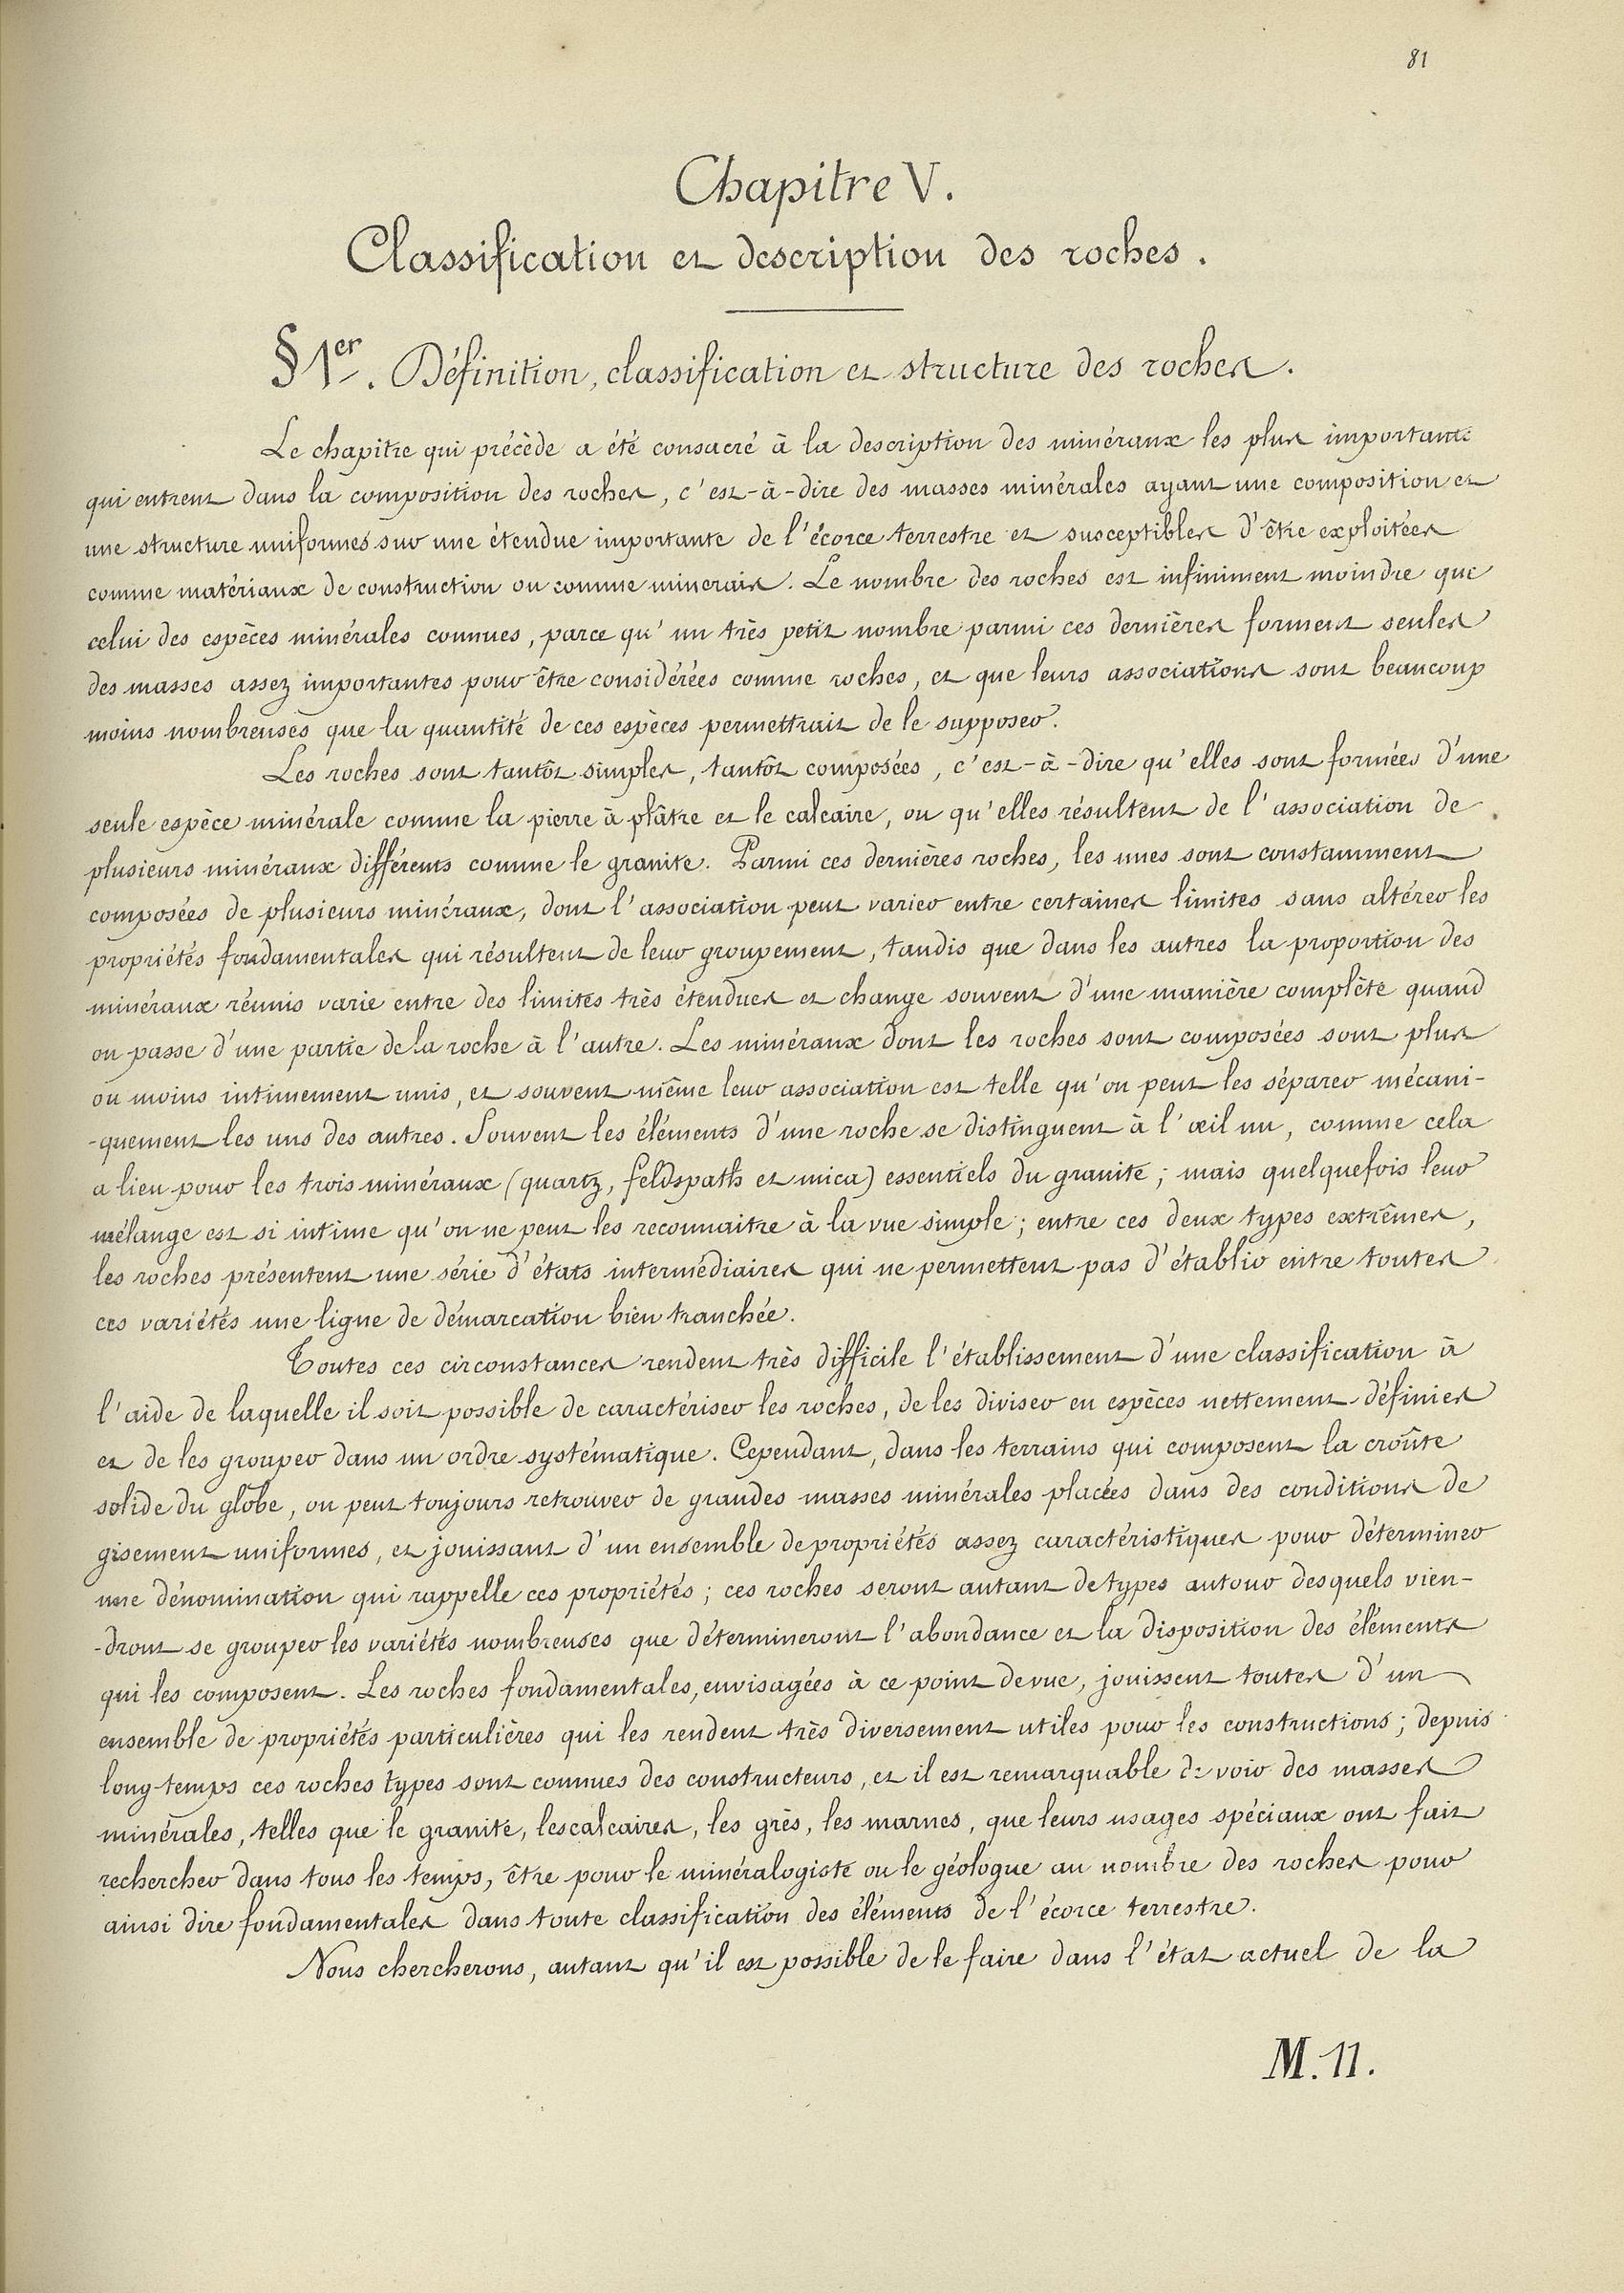 81
Chapitre V.
Classification et description des roches.
§ 1er. Définition, classification et structure des roches.
Le chapitre qui précède a été consacré à la description des minéraux les plus importants
qui entrent dans la composition des roches, c'est-à-dire des masses minérales ayant une composition et
une structure uniformes sur une étendue importante de l'écorce terrestre et susceptibles d'être exploitées
comme matériaux de construction ou comme minerais. Le nombre des roches est infiniment moindre que
celui des espèces minérales connues, parce qu'un très petit nombre parmi ces dernières forment seules
des masses assez importantes pour être considérées comme roches, et que leurs associations sont beaucoup
moins nombreuses que la quantité de ces espèces permettrait de le supposer.
Les roches sont tantôt simples, tantôt composées, c'est-à-dire qu'elles sont formées d'une
seule espèce minérale comme la pierre à plâtre et le calcaire, ou qu'elles résultent de l'association de
plusieurs minéraux différents comme le granite. Parmi ces dernières roches, les unes sont constamment
composées de plusieurs minéraux, dont l'association peut varier entre certaines limites sans altérer les
propriétés fondamentales qui résultent de leur groupement, tandis que dans les autres la proportion des
minéraux réunis varie entre des limites très étendues et change souvent d'une manière complète quand
on passe d'une partie de la roche à l'autre. Les minéraux dont les roches sont composées sont plus
ou moins intimement unis, et souvent même leur association est telle qu'on peut les séparer mécani-
-quement les uns des autres. Souvent les éléments d'une roche se distinguent à l'œil nu, comme cela
a lieu pour les trois minéraux (quartz, feldspath et mica) essentiels du granite; mais quelquefois leur
mélange est si intime qu'on ne peut les reconnaitre à la vue simple; entre ces deux types extrêmes,
les roches présentent une série d'états intermédiaires qui ne permettent pas d'établir entre toutes
ces variétés une ligne de démarcation bien tranchée.
Toutes ces circonstances rendent très difficile l'établissement d'une classification à
l'aide de laquelle il soit possible de caractériser les roches, de les diviser en espèces nettement définies
et de les grouper dans un ordre systématique. Cependant, dans les terrains qui composent la croûte
solide du globe, on peut toujours retrouver de grandes masses minérales placées dans des conditions de
gisement uniformes, et jouissant d'un ensemble de propriétés assez caractéristiques pour déterminer
une dénomination qui rappelle ces propriétés; ces roches seront autant de types autour desquels vien-
-dront se grouper les variétés nombreuses que détermineront l'abondance et la disposition des éléments
qui les composent. Les roches fondamentales, envisagées à ce point de vue, jouissent toutes d'un
ensemble de propriétés particulières qui les rendent très diversement utiles pour les constructions; depuis
long-temps ces roches types sont connues des constructeurs, et il est remarquable de voir des masses
minérales, telles que le granite, les calcaires, les grès, les marnes, que leurs usages spéciaux ont fait
rechercher dans tous les temps, être pour le minéralogiste ou le géologue au nombre des roches pour
ainsi dire fondamentales dans toute classification des éléments de l'écorce terrestre.
Nous chercherons, autant qu'il est possible de le faire dans l'état actuel de la
M. 11.